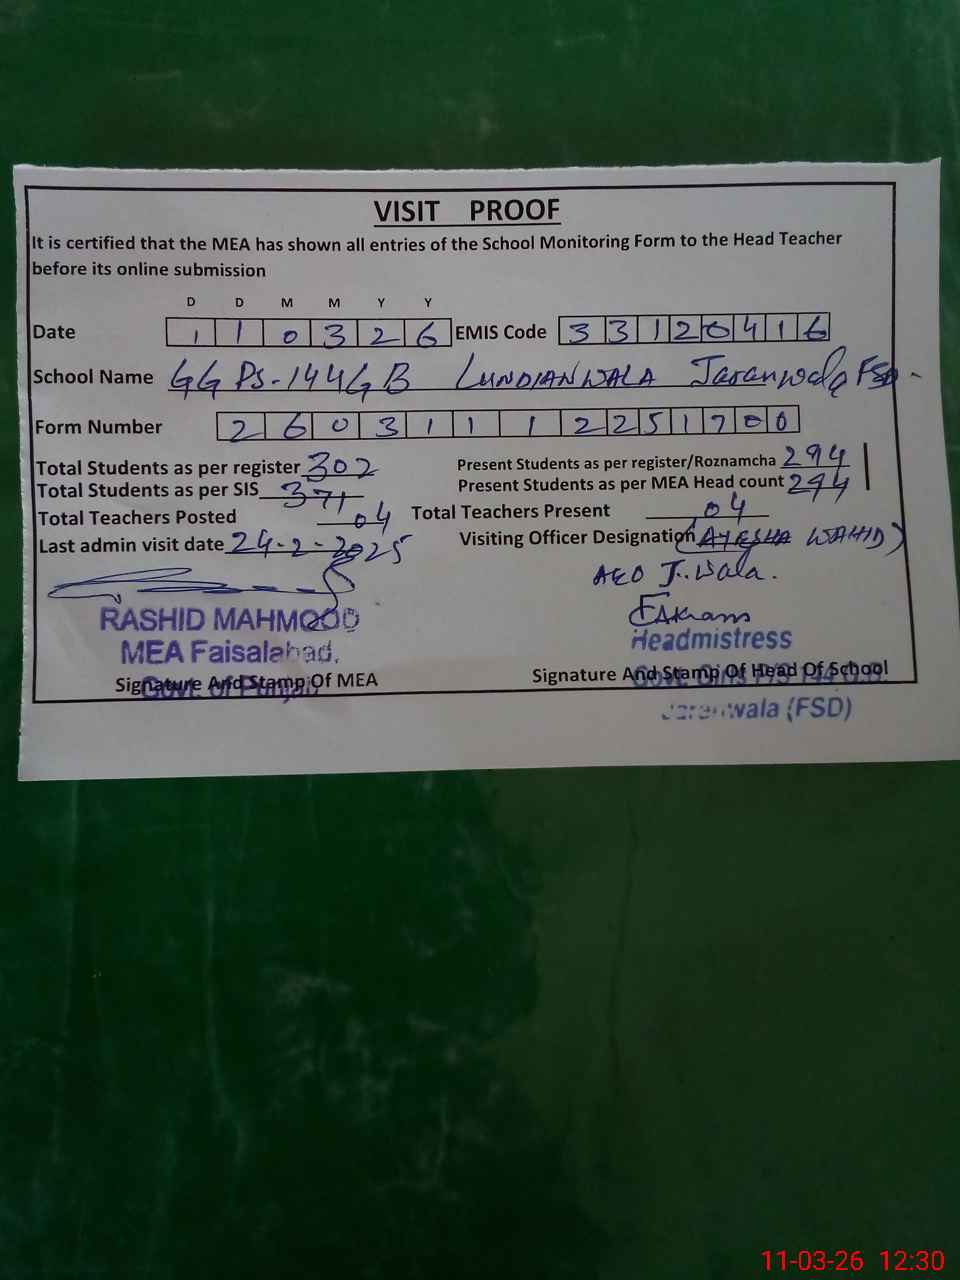 VISIT PROOF
It is certified that the MEA has shown all entries of the School Monitoring Form to the Head Teacher
before its online submission
D D M M Y Y
Date 1 1 0 3 2 6 EMIS Code 3 3 1 2 0 4 1 6
School Name GGPS-144GB LUNDIANWALA Jaranwala FSD-
Form Number 2 6 0 3 1 1 1 2 2 5 1 7 0 0
Total Students as per register 302 Present Students as per register/Roznamcha 294
Total Students as per SIS 371 Present Students as per MEA Head count 294
Total Teachers Posted 04 Total Teachers Present 04
Last admin visit date 24-2-2025 Visiting Officer Designation (AYESHA WAHID)
AEO J.Wala.
RASHID MAHMOOD
MEA Faisalabad.
Govt. of Punjab
Signature And Stamp Of MEA
FAkram
Headmistress
Govt. Girls P/S 144 G.B.
Signature And Stamp Of Head Of School
Jaranwala (FSD)
11-03-26 12:30